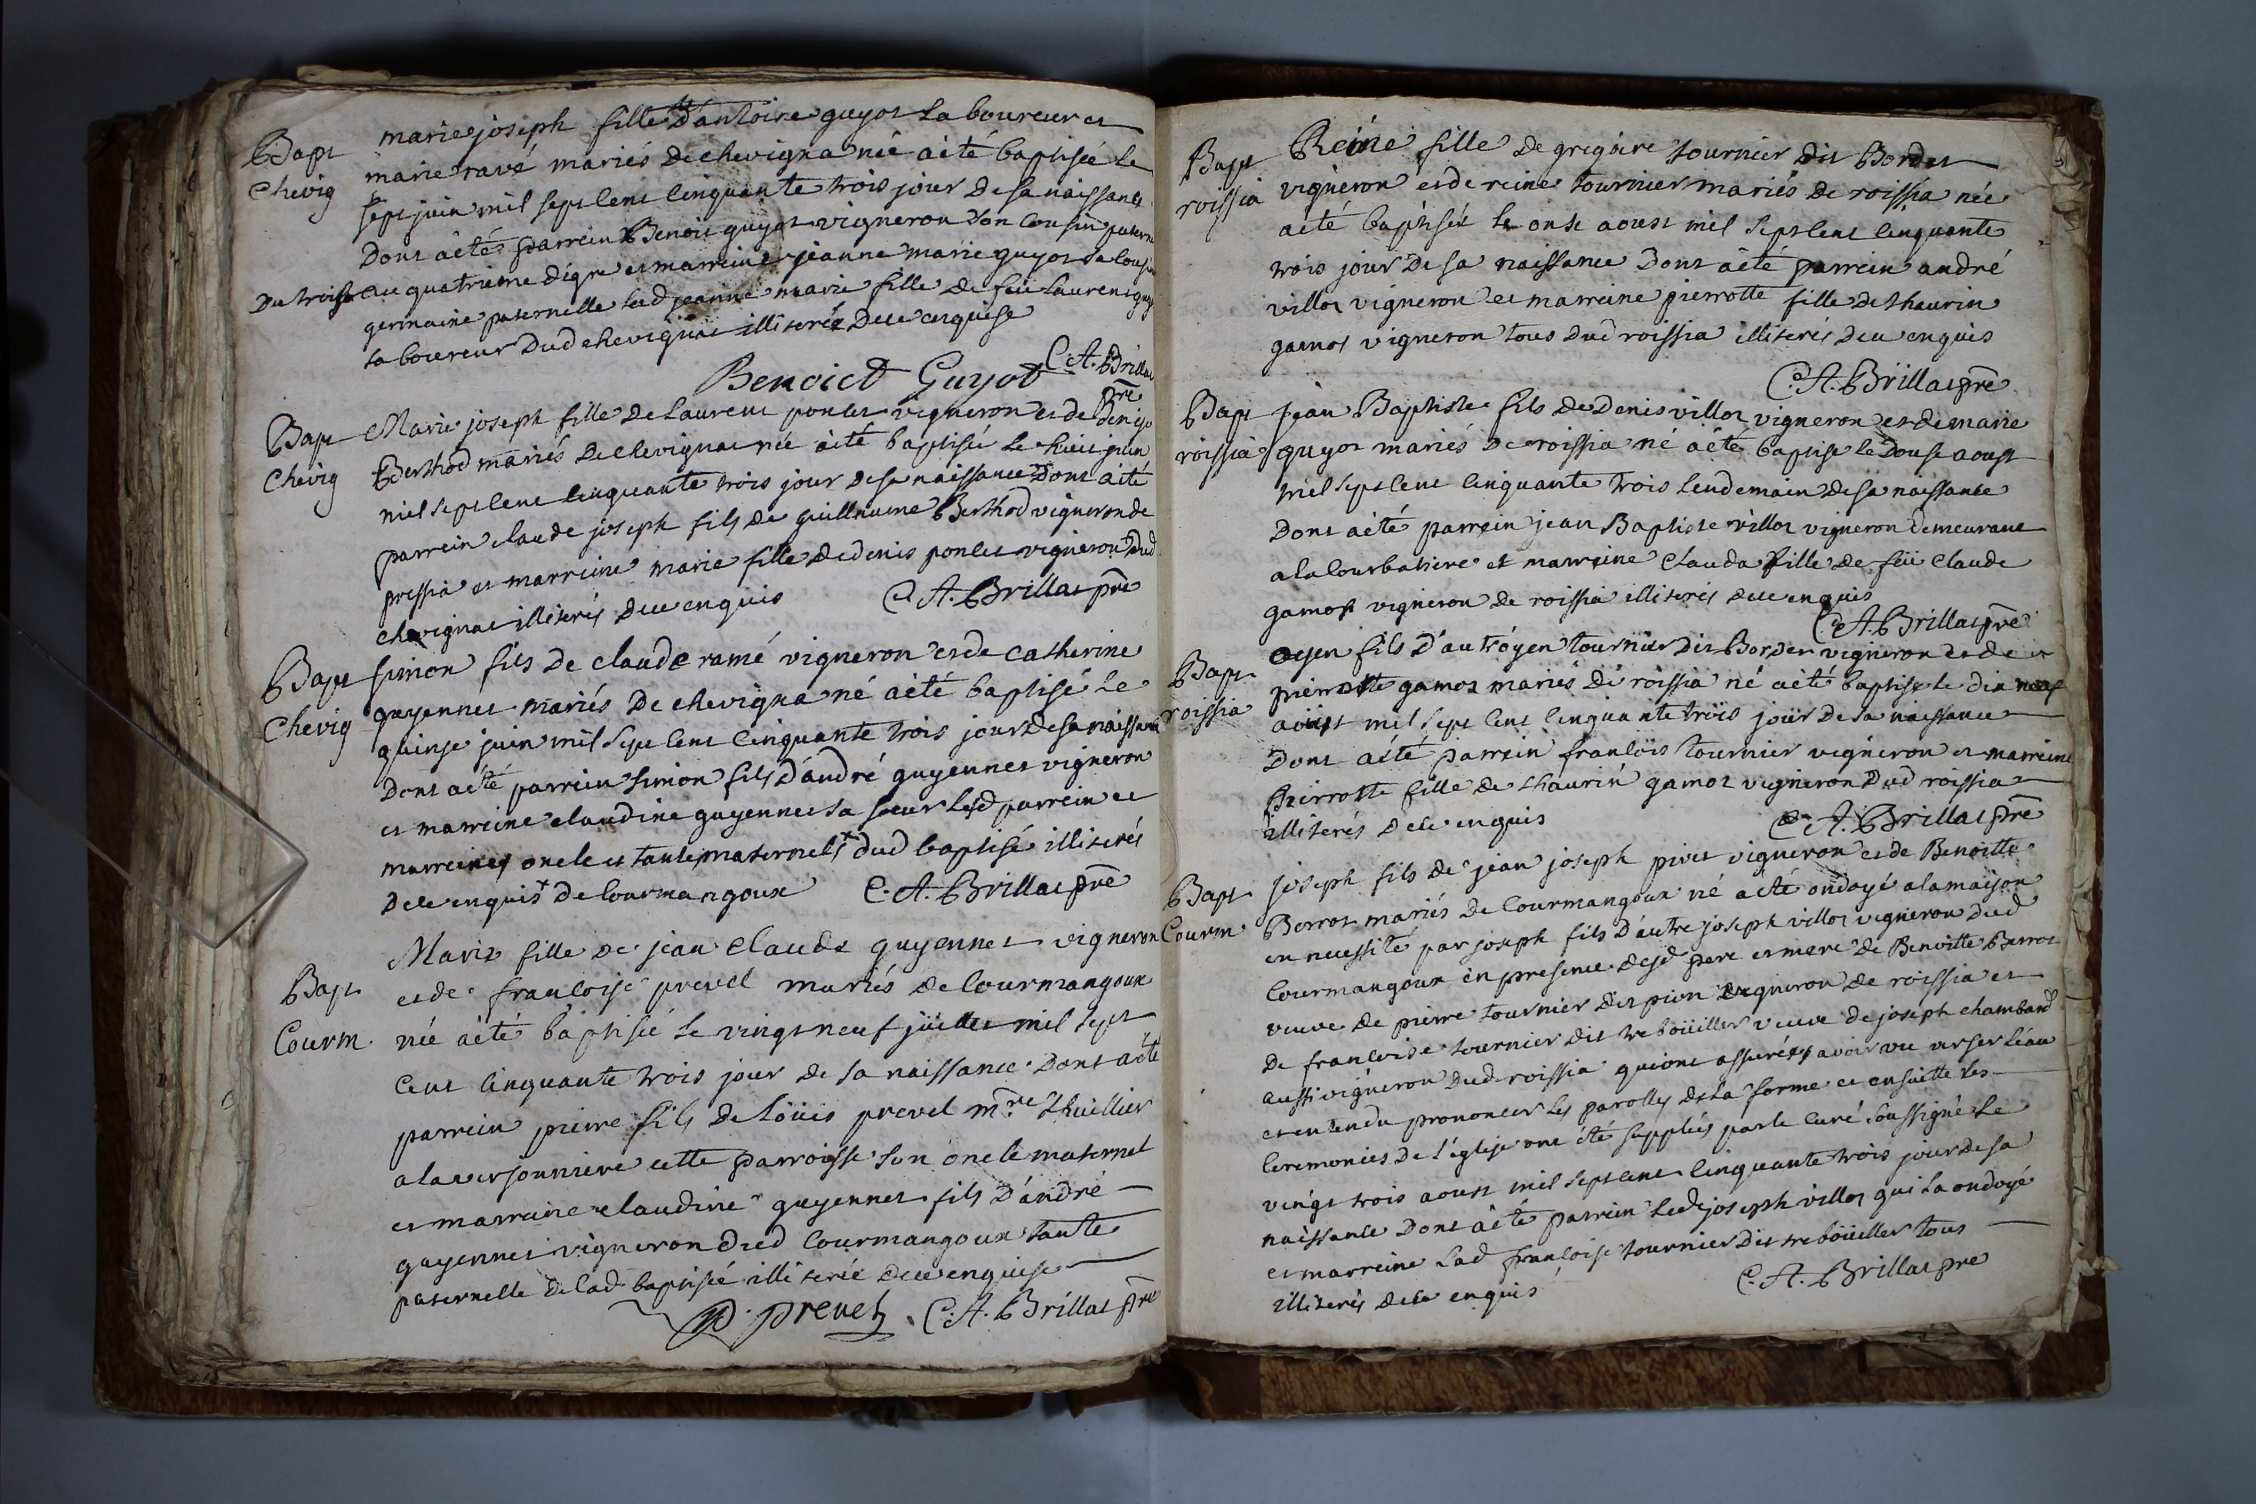 Bapt
Chevig
marie joseph fille D'antoine guyot Laboureur et
marie ravé mariés De chevigna née aété baptisée le
sept juin mil sept cent cinquante trois jour De sa naissance
Dont aété parrein Benoit guyot vigneron son cousin
Du trois au quatrieme dégre et marreine jeanne marie guyot sa cousine
germaine paternelle lad jeanne marie fille de feu Laurent
laboureur Dud chevignat illiterée De ce enquise
Benoict Guyot C. A. Brillat
pre
Bapt
Chevig
Marie joseph fille De Laurent poncet vigneron et de
Berthod mariés De chevignat née aété baptisée le huit juin
mil sept cent cinquante trois jour de sa naissance Dont aété
parrein claude joseph fils de guillaume Berthod vigneron de
pressia et marreine marie fille de denis poncet vigneron Dud
chevignat illiterés De ce enquis C. A. Brillat pre
Bapt
Chevig
simon fils De claude ramé vigneron et de catherine
guyennet mariés De chevigna né aété baptisé le
quinse juin mil sept cent cinquante trois jour de sa naissance
Dont aété parrein simon fils D'andré guyennet vigneron
et marreine claudine guyennet sa soeur lesd parrein et
marreine oncle et tante maternels + dud baptisé illiterés
De ce enquis + De Courmangoux C. A. Brillat pre
Bapt
Courm.
Marie fille De jean Claude guyennet vigneron
et de françoise prevel mariés de Courmangoux
née aété baptisée le vingt neuf juillet mil sept
cent cinquante trois jour de sa naissance Dont aété
parrein pierre fils De Loüis prevel mre thuillier
a la cette parroisse son oncle maternel
et marreine claudine guyennet fils D'andré
guyennet vigneron dud Courmangoux tante
paternelle de lad baptisée illiterée De ce enquise
P. prevel . C. A. Brillat pre
Bapt
roissia
Reine fille De gregoire tournier dit Bordet
vigneron et de reine tournier mariés De roissia née
aété baptisée le onse aoust mil sept cent cinquante
trois jour De sa naissance Dont aété parrein andré
villot vigneron et marreine pierrotte fille de thaurin
gamot vigneron tous dud roissia illiterés de ce enquis
C. A. Brillat pre
Bapt
roissia
jean Baptiste fils De Denis villot vigneron et de marie
guyot mariés De roissia né aété baptisé le Douse aoust
mil sept cent cinquante trois lendemain de sa naissance
Dont aété parrein jean Baptiste villot vigneron demeurant
a la Courbatiere et marreine Clauda fille de feu Claude
gamot vigneron De roissia illiterés de ce enquis
C. A. Brillat pre
Bapt
roissia
oyen fils D'autre oyen tournier Dit Bordet vigneron et de
pierrotte gamot mariés De roissia né aété baptisé le dix neuf
aoust mil sept cent cinquante trois jour De sa naissance
Dont aété parrein françois tournier vigneron et marreine
Pierrotte fille de thaurin gamot vigneron Dud roissia
illiterés De ce enquis C. A. Brillat pre
Bapt
Courm
joseph fils de jean joseph pivet vigneron et de Benoitte
Berrot mariés De Courmangoux né aété ondoyé a la maison
en necessité par joseph fils D'autre joseph villot vigneron dud
Courmangoux en presence desd pere et mere de Benoitte Berrot
veuve De pierre tournier dit pion vigneron de roissia et
De francoise tournier dit treboüillet veuve de joseph chambard
aussi vigneron dud roissia qui ont assurées avoir vu verser l'eau
et entendu prononcer les parolles de la forme et ensuitte les
ceremonies De l'église ont été supplées par le curé soussigné le
vingt trois aoust mil sept cent cinquante trois jour de sa
naissance Dont aété parrein led joseph villot qui la ondoyé
et marreine lad françoise tournier dit treboüillet tous
illiterés de ce enquis C. A. Brillat pre